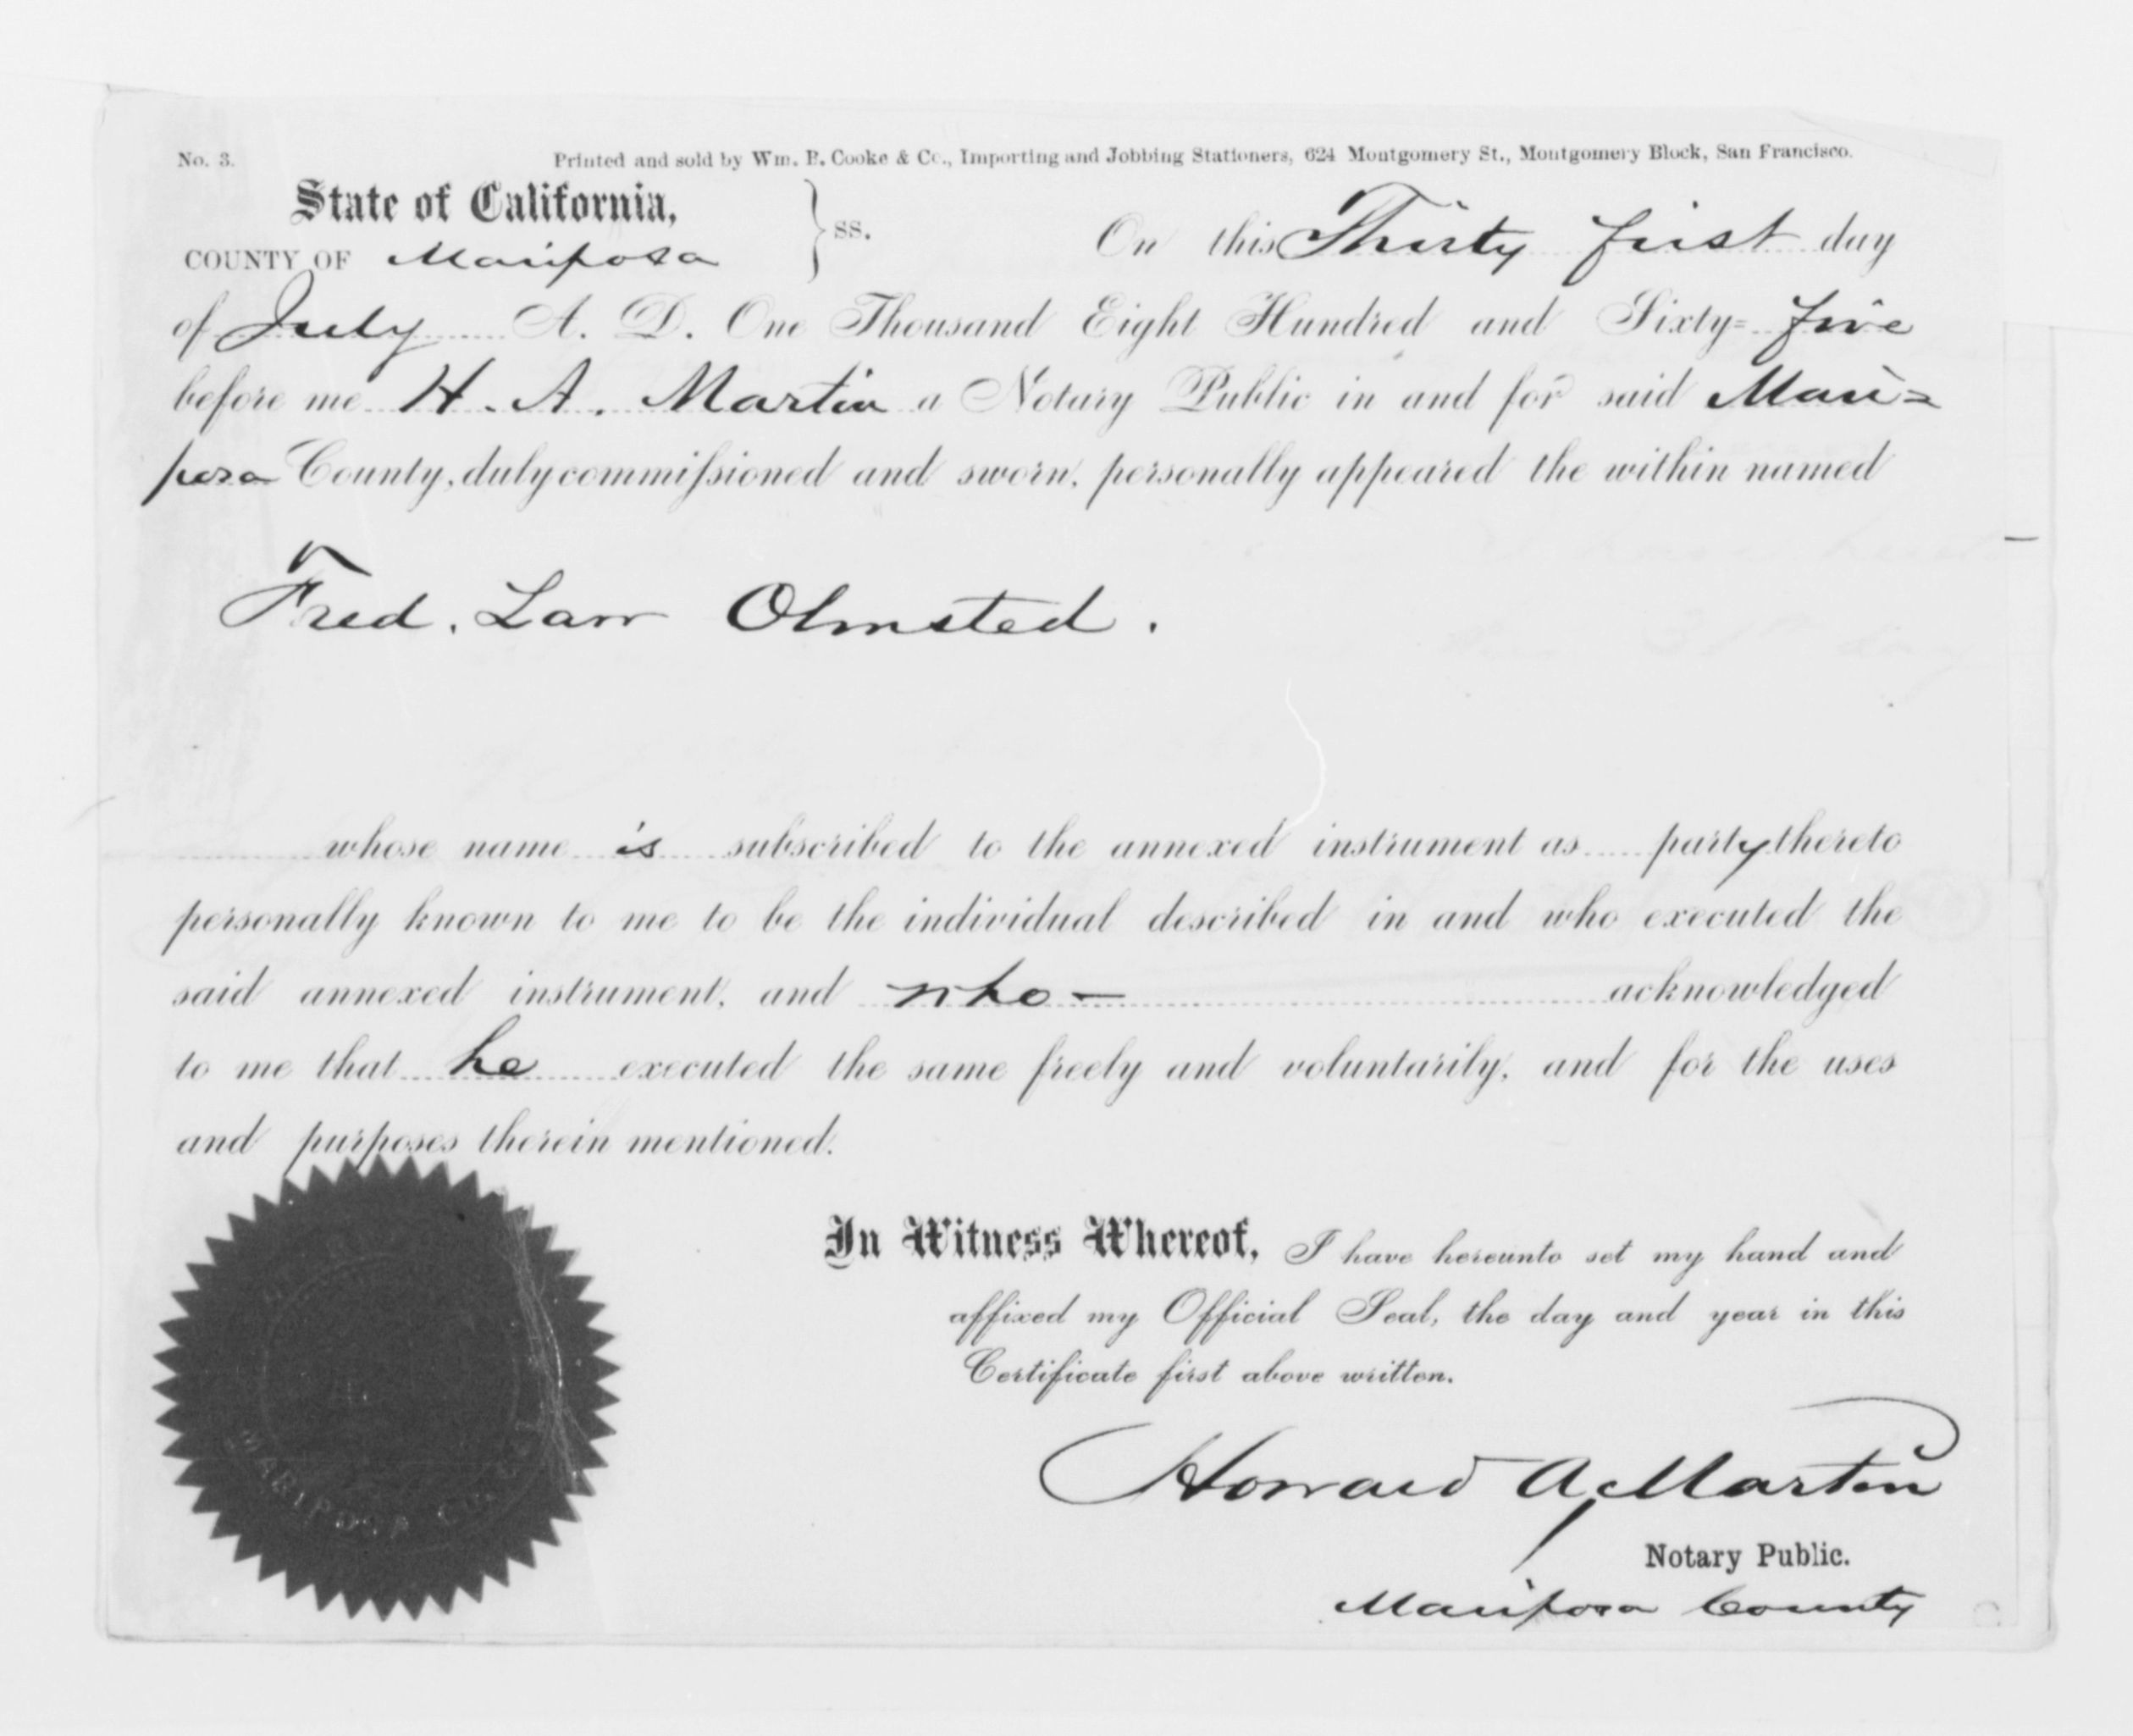 No. 3. Printed and sold by Wm. B. Cooke & Co., Importing and Jobbing Stationers, 624 Montgomery St., Montgomery Block, San Francisco.
State of California,
COUNTY OF Mariposa } ss. On this Thirty first day
of July A. D. One Thousand Eight Hundred and Sixty= five
before me H. A. Martin a Notary Public in and for said Mari=
posa County, duly commissioned and sworn, personally appeared the within named
Fred. Law Olmsted.
whose name is subscribed to the annexed instrument as party thereto
personally known to me to be the individual described in and who executed the
said annexed instrument, and who — acknowledged
to me that he executed the same freely and voluntarily, and for the uses
and purposes therein mentioned.
In Witness Whereof, I have hereunto set my hand and
affixed my Official Seal, the day and year in this
Certificate first above written.
Howard A. Martin
Notary Public.
Mariposa County
MARIPOSA CO.